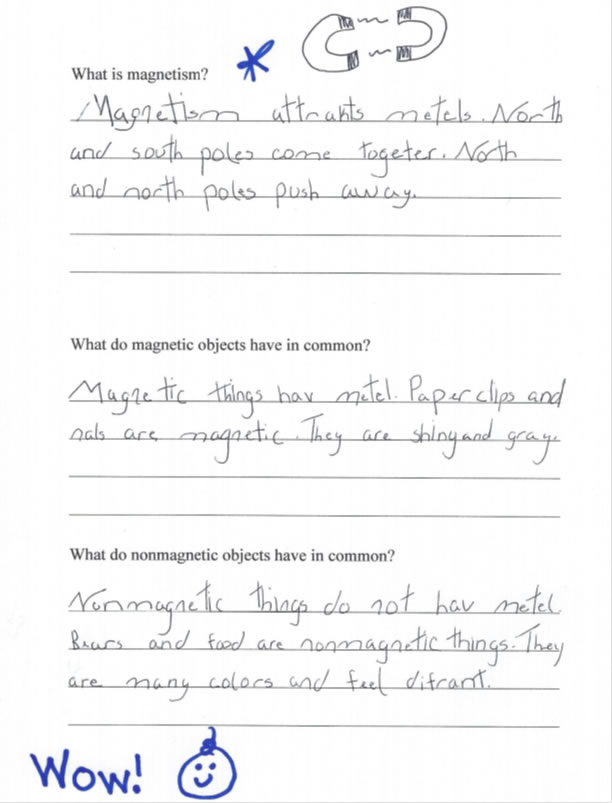 What is magnetism?
Magnetism attrakts metels. North
and south poles come togeter. North
and north poles push away.
What do magnetic objects have in common?
Magnetic things hav metel. Paper clips and
nals are magnetic. They are shiny and gray.
What do nonmagnetic objects have in common?
Nonmagnetic things do not hav metel.
and food are nonmagnetic things. They
are many colors and feel difrant.
Wow!